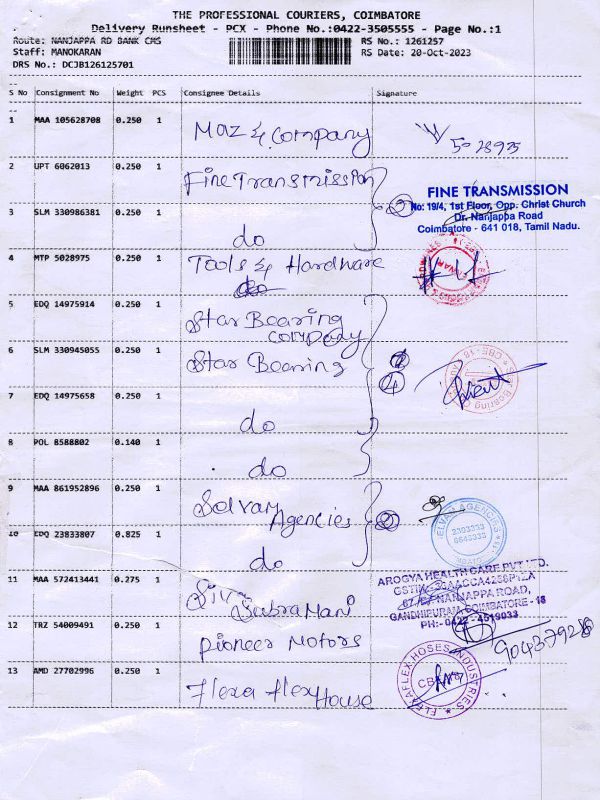 THE PROFESSIONAL COURIERS, COIMBATORE
Delivery Runsheet - PCX - Phone No.:0422-3505555 - Page No.:1
Route: NANJAPPA RD BANK CMS
RS No.: 1261257
Staff: MANOKARAN
RS Date: 20-Oct-2023
DRS No.: DCJB126125701
S No Consignment No Weight PCS Consignee Details Signature
1 MAA 105628708 0.250 1 Maz & Company
2 UPT 6062013 0.250 1 Fine Transmission
FINE TRANSMISSION
No: 19/4, 1st Floor, Opp. Christ Church
Dr. Nanjappa Road
Coimbatore - 641 018, Tamil Nadu.
3 SLM 330986381 0.250 1 do
4 MTP 5028975 0.250 1 Tools & Hardware
do
5 EDQ 14975914 0.250 1 Star Bearing
company
6 SLM 330945055 0.250 1 Star Bearing
4
7 EDQ 14975658 0.250 1 do
8 POL 8588802 0.140 1 do
9 MAA 861952896 0.250 1 Selvam
Agencies
2
10 EDQ 23833807 0.825 1 do
11 MAA 572413441 0.275 1 Siva
SubraMani
AROGYA HEALTH CARE PVT LTD.
NANJAPPA ROAD,
GANDHIPURAM, COIMBATORE - 18
PH:- 0422 - 4519033
12 TRZ 54009491 0.250 1 Pioneer Motors
13 AMD 27702996 0.250 1 Flexa flex House
FLEXAFLEX HOSES INDUSTRIES
CBE